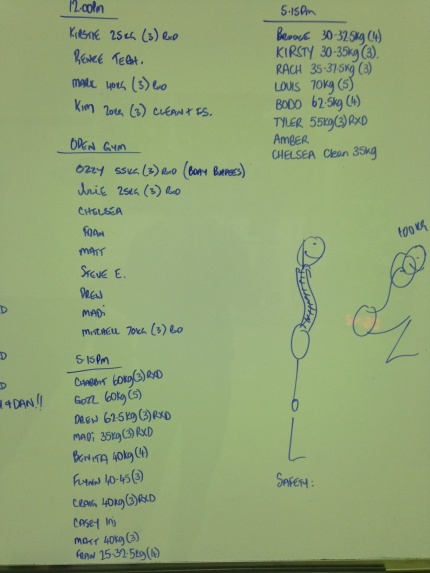 12.00pm
KIRSTIE 25KG (3) RXD
RENEE TECH.
MARK 40KG (3) RXD
KIM 20KG (3) CLEAN + FS.
OPEN GYM
OZZY 55KG (3) RXD (BODY BURPEES)
JULIE 25KG (3) RXD
CHELSEA
FRAN
MATT
STEVE E.
DREW
MADI
MITCHELL 70KG (3) RXD
5.15pm
CHABBIT 60KG(3)RXD
GOZZ 60KG(5)
DREW 62.5KG(3)RXD
MADI 35KG(3)RXD
BENITA 40KG(4)
FLYNN 40-45(3)
CRAIG 40KG(3)RXD
CASEY INJ
MATT 40KG(3)
FRAN 25-32.5KG(4)
5.15pm
BROOKE 30-32.5KG(4)
KIRSTY 30-35KG(3).
RACH 35-37.5KG(3)
LOUIS 70KG(5)
BODO 62.5KG(4)
TYLER 55KG(3)RXD
AMBER
CHELSEA Clean 35KG
100KG
SAFETY:
D
D
D
+DAN!!